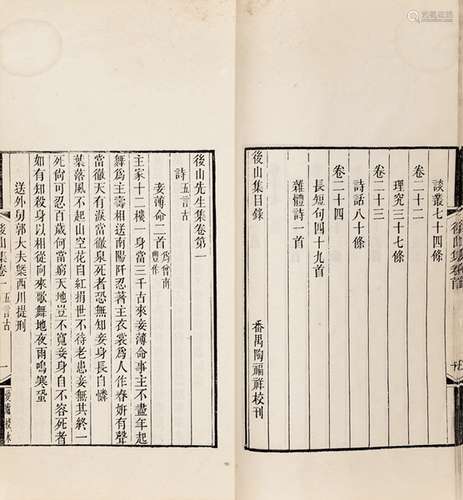 談叢七十四條
卷二十二
理究三十七條
卷二十三
詩話八十條
卷二十四
長短句四十九首
雜體詩一首
後山集目錄
番禺陶福祥校刊
後山先生集卷第一
詩五言古
妾薄命二首爲曾南豐作
主家十二樓一身當三千古來妾薄命事主不盡年起
舞爲主壽相送南陽阡忍著主衣裳爲人作春妍有聲
當徹天有淚當徹泉死者恐無知妾身長自憐
葉落風不起山空花自紅捐世不待老惠妾無其終一
死尚可忍百歲何當窮天地豈不寬妾身自不容死者
如有知殺身以相從向來歌舞地夜雨鳴寒蛩
送外舅郭大夫槩西川提刑
後山集卷一 五言古 一